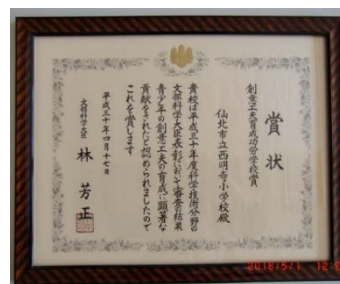 賞状
創意工夫育成功労学校賞
仙北市立西明寺小学校殿
貴校は平成三十年度科学技術分野の
文部科学大臣表彰において審査の結果
青少年の創意工夫の育成に顕著な
貢献をされたと認められましたので
これを賞します
平成三十年四月十七日
文部科学大臣 林芳正
2018/5/1